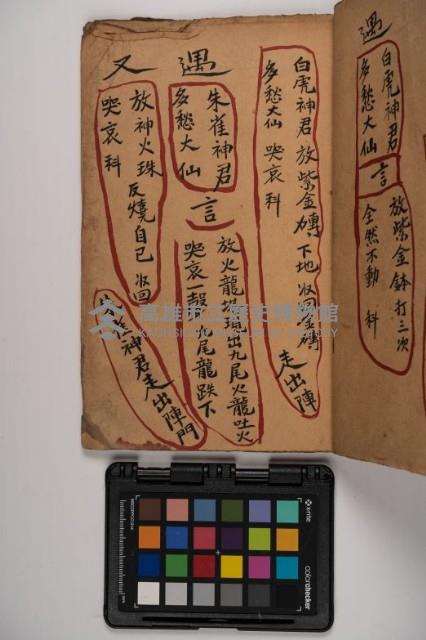 遇
白虎神君
多愁大仙
言
放紫金鉢打三次
全然不動 科
白虎神君 放紫金磚 下地 收回金磚 走出陣
多愁大仙 哭哀科
遇
朱雀神君
多愁大仙
言
放火龍 出九尾火龍吐火
哭哀一聲 火尾龍跌下
又
放神火珠 反燒自己 收回
哭哀科
神君走出陣門
高雄市立歷史博物館
KAOHSIUNG MUSEUM OF HISTORY
x-rite
colorchecker